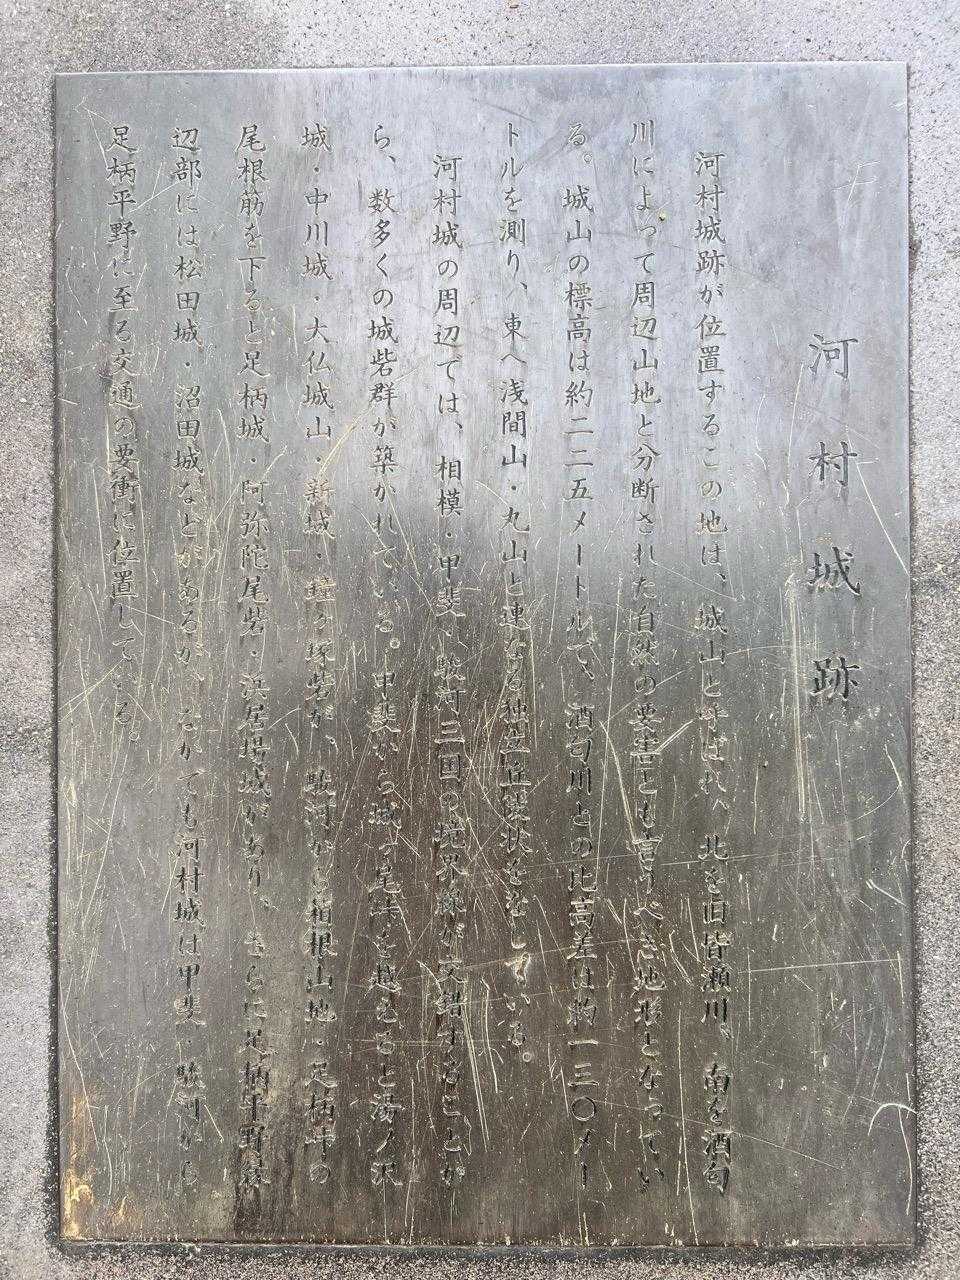 河村城跡
河村城跡が位置するこの地は、城山と呼ばれ、北を旧皆瀬川、南を酒匂
川によって周辺山地と分断された自然の要害とも言うべき地形となってい
る。城山の標高は約二二五メートルで、酒匂川との比高差は約一三〇メー
トルを測り、東へ浅間山・丸山と連なる独立丘陵状をなしている。
河村城の周辺では、相模・甲斐・駿河三国の境界線が交錯することか
ら、数多くの城砦群が築かれている。甲斐から城ヶ尾峠を越えると湯ノ沢
城・中川城・大仏城山・新城・鐘ヶ塚砦が、駿河から箱根山地・足柄峠の
尾根筋を下ると足柄城・阿弥陀尾砦・浜居場城があり、さらに足柄平野縁
辺部には松田城・沼田城などがあるが、なかでも河村城は甲斐・駿河から
足柄平野に至る交通の要衝に位置している。